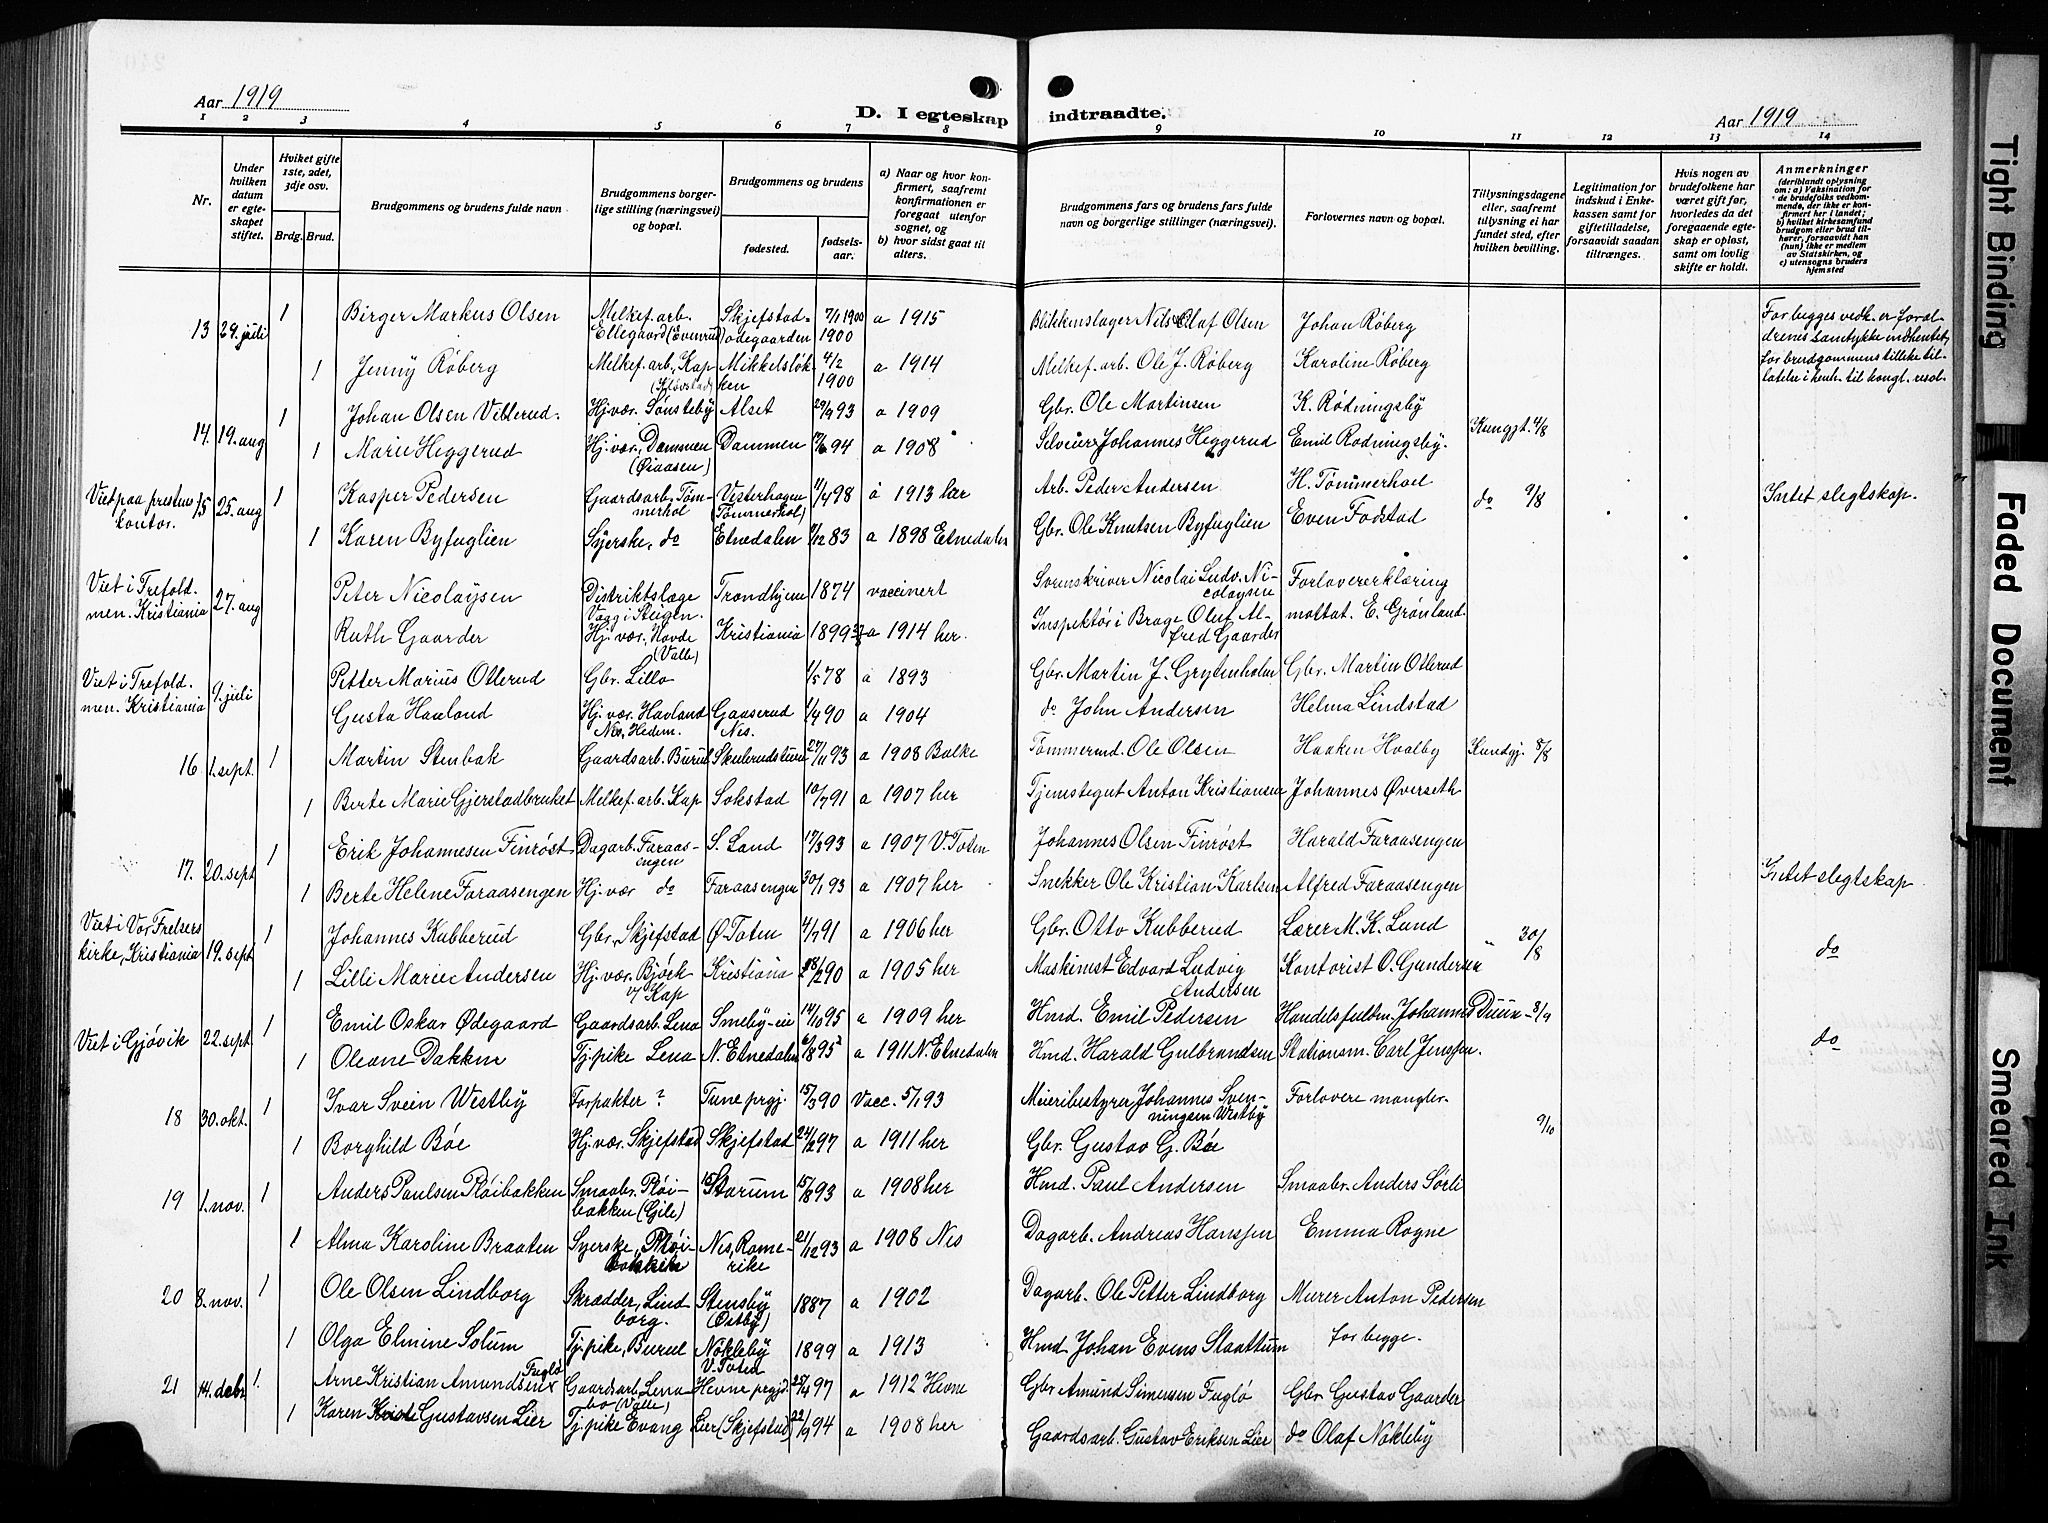 Aar 1919
D. I egteskap indtraadte.
Aar 1919
1 2 3 4 5 6 7 8 9 10 11 12 13 14
Nr.
Under hvilken datum er egteskapet stiftet.
Hviket gifte 1ste, 2det, 3dje osv.
Brdg. Brud.
Brudgommens og brudens fulde navn
Brudgommens borgerlige stilling (næringsvei) og bopæl.
Brudgommens og brudens
fødested.
fødselsaar.
a) Naar og hvor konfirmert, saafremt konfirmationen er foregaat utenfor sognet, og
b) hvor sidst gaat til alters.
Brudgommens fars og brudens fars fulde navn og borgerlige stillinger (næringsvei).
Forlovernes navn og bopæl.
Tillysningsdagene eller, saafremt tillysning ei har fundet sted, efter hvilken bevilling.
Legitimation for indskud i Enkekassen samt for giftetilladelse, forsaavidt saadan tiltrænges.
Hvis nogen av brudefolkene har været gift før, hvorledes da det foregaaende egteskap er opløst, samt om lovlig skifte er holdt.
Anmerkninger
(deriblandt oplysning om: a) Vaksination for de brudefolks vedkommende, der ikke er konfirmert her i landet; b) hvilket kirkesamfund brudgom eller brud tilhører, forsaavidt han (hun) ikke er medlem av Statskirken, og c) utensogns bruders hjemsted
13 29. juli 1 Birger Markus Olsen Melkef. arb. Ellegaard (Evenrud) Skjefstadødegaarden 7/1 1900 1900 a 1915 Blikkenslager Nils Olaf Olsen Johan Røberg
For begges vedk. er forældrenes samtykke indhentet, for brudgommens tillike tilladelse i henh. til kongl. resol.
1 Jenny Røberg Melkef. arb. Kap Mikkelsløkken 4/2 1900 a 1914 Melkef. arb. Ole J. Røberg Karoline Røberg
14. 19. aug 1 Johan Olsen Vitterud. Hj. vær. Sønsteby Alset 29/9 93 a 1909 Gbr. Ole Martinsen K. Rødningsby Kungjt. 4/8
1 Marie Heggerud Hj. vær. Dammen (Øiaasen) Dammen 17/6 94 a 1908 Selveier Johannes Heggerud Emil Rødningsby.
Viet paa prestens kontor. 15 25. aug 1 Kasper Pedersen Gaardsarb. Tømmerhol Vesterhagen (Tømmerhol) 11/4 98 a 1913 her Arb. Peder Andersen H. Tømmerhol do 9/8 Intet slegtskap.
1 Karen Byfuglien Syerske, do Etnedalen 9/12 83 a 1898 Etnedalen Gbr. Ole Knutsen Byfuglien Even Fodstad
Viet i Trefoldmen. Kristiania 27. aug Peter Nicolaysen Distriktslæge Vaag i Steigen. Trondhjem 1874 vaccinert Sorenskriver Nicolai Ludv. Nicolaysen Forlovererklæring
Ruth Gaarder Hj. vær. Hovde (Valle) Kristiania 1899 a 1914 her. Inspektør i Brage Oluf Alfred Gaarder mottat. E. Grønland
Viet i Trefoldmen. Kristiania 9. juli Petter Marius Otterud Gbr. Lillo 1/5 78 a 1893 Gbr. Martin J. Grytenholm Gbr. Martin Otterud
Gusta Havland Hj. vær. Havland Nes, Hedem. Gaaserud Nes. 1/4 90 a 1904 do John Andersen Helma Lindstad
16 1. sept. 1 Martin Stenbak Gaardsarb. Burul Skulerudstuen 27/11 93 a 1908 Balke Tømmermd. Ole Olsen Haaken Hvalby Kundgj. 8/8
1 Berte Marie Gjerstadbruket Melkef. arb. Kap Sokstad 10/7 91 a 1907 her Tjenestegut Anton Kristiansen Johannes Øverseth
17. 20. sept 1 Erik Johannesen Finrøst Dagarb. Faraasengen S. Land 17/3 93 a 1907 V. Toten Johannes Olsen Finrøst Harald Faraasengen Intet slegtskap
1 Berte Helene Faraasengen Hj. vær do Faraasengen 30/1 93 a 1907 her Snekker Ole Kristian Karlsen Alfred Faraasengen
Viet i Vor Frelsers kirke, Kristiania 19. sept 1 Johannes Kubberud Gbr. Skjefstad Ø. Toten 4/7 91 a 1906 her Gbr. Otto Kubberud Lærer M. K. Lund " 30/8 do
1 Lilli Marie Andersen Hj. vær. Bjørk v/ Kap Kristiania 18/2 90 a 1905 her Maskinist Edvard Ludvig Andersen Kontorist O. Gundersen
Viet i Gjøvik 22. sept 1 Emil Oskar Ødegaard Gaardsarb. Lena Smeby-eie 14/10 95 a 1909 her Hmd. Emil Pedersen Handelsfuldm. Johannes Duun - 3/9 do
1 Oleane Dakken Tj. pike Lena N. Etnedalen 6/8 95 a 1911 N. Etnedalen Hmd. Harald Gulbrandsen Stationsm. Carl Jenssen.
18 30. okt. 1 Ivar Svein Westby Forpakter ? Tune prgj. 15/3 90 Vacc. 5/1 93 Meieribestyrer Johannes Svenningsen Westby Forlovere mangler. 9/10
1 Borghild Bøe Hj. vær. Skjefstad Skjefstad 24/2 97 a 1911 her Gbr. Gustav G. Bøe
19 1. nov. 1 Anders Paulsen Røibakken Smaabr. Røibakken (Gile) Starum 15/8 93 a 1908 her Hmd. Paul Andersen Smaabr. Anders Sørli
1 Alma Karoline Braaten Syerske, Røibakken Nes, Romerike 21/12 93 a 1908 Nes Dagarb. Andreas Hanssen Emma Rogne
20 8. nov. 1 Ole Olsen Lindborg Skrædder, Lindborg. Stensby (Østby) 1887 a 1902 Dagarb. Ole Petter Lindborg Murer Anton Pedersen
1 Olga Elmine Solum Tj. pike, Burul Nøkleby V. Toten 1899 a 1913 Hmd. Johan Evens Slaattum for begge.
21 14. debr 1. Arne Kristian Amundsen Fuglø Gaardsarb. Lena bo (Valle) Hevne prgjd. 25/4 97 a 1912 Hevne Gbr Amund Simensen Fuglø Gbr. Gustav Gaarder
1 Karen Kristi Gustavsen Lier Tj. pike Evang Lier (Skjefstad) 22/9 94 a 1908 her Gaardsarb. Gustav Eriksen Lier do Olaf Nøkleby
Tight Binding
Faded Document
Smeared Ink